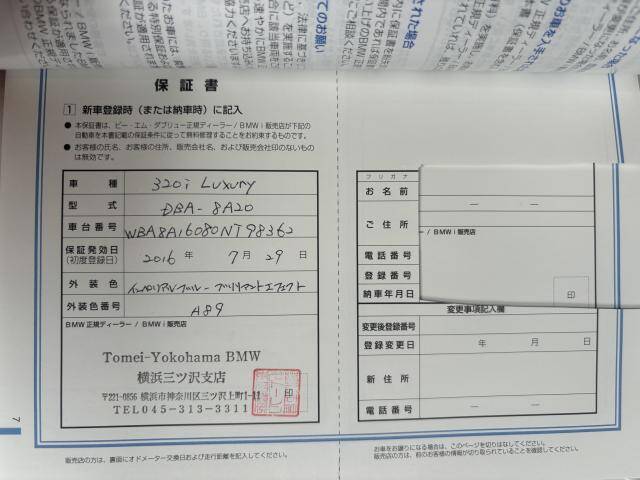 保証書
1 新車登録時(または納車時)に記入
● 本保証書は、ビー・エム・ダブリュー正規ディーラー/BMW i 販売店が下記の
自動車を本書記載の保証条件に従って無料修理することをお約束するものです。
● お客様の氏名、お客様の住所、販売会社名、および販売会社印のないもの
は無効です。
車種 320i Luxury
型式 DBA-8A20
車台番号 WBA8A16080NT98362
保証発効日
(初度登録日) 2016年 7月 29日
外装色 インペリアルブルー・ブリリアントエフェクト
外装色番号 A89
BMW 正規ディーラー / BMW i 販売店
Tomei-Yokohama BMW
横浜三ツ沢支店
〒221-0856 横浜市神奈川区三ツ沢上町1-11
TEL045-313-3311
印
販売店の方は、裏面にオドメーター交換日および走行距離を記入してください。
7
フリガナ
お名前
ご住所
/ BMW i 販売店
電話番号
登録番号
納車年月日
印
変更事項記入欄
変更後登録番号
登録変更日 年 月 日
新住所
電話番号
お車をお譲りになる場合は、このページを切りはなしてください。
販売店の方は、前のお客様の情報が切り取られていることを確認してください。